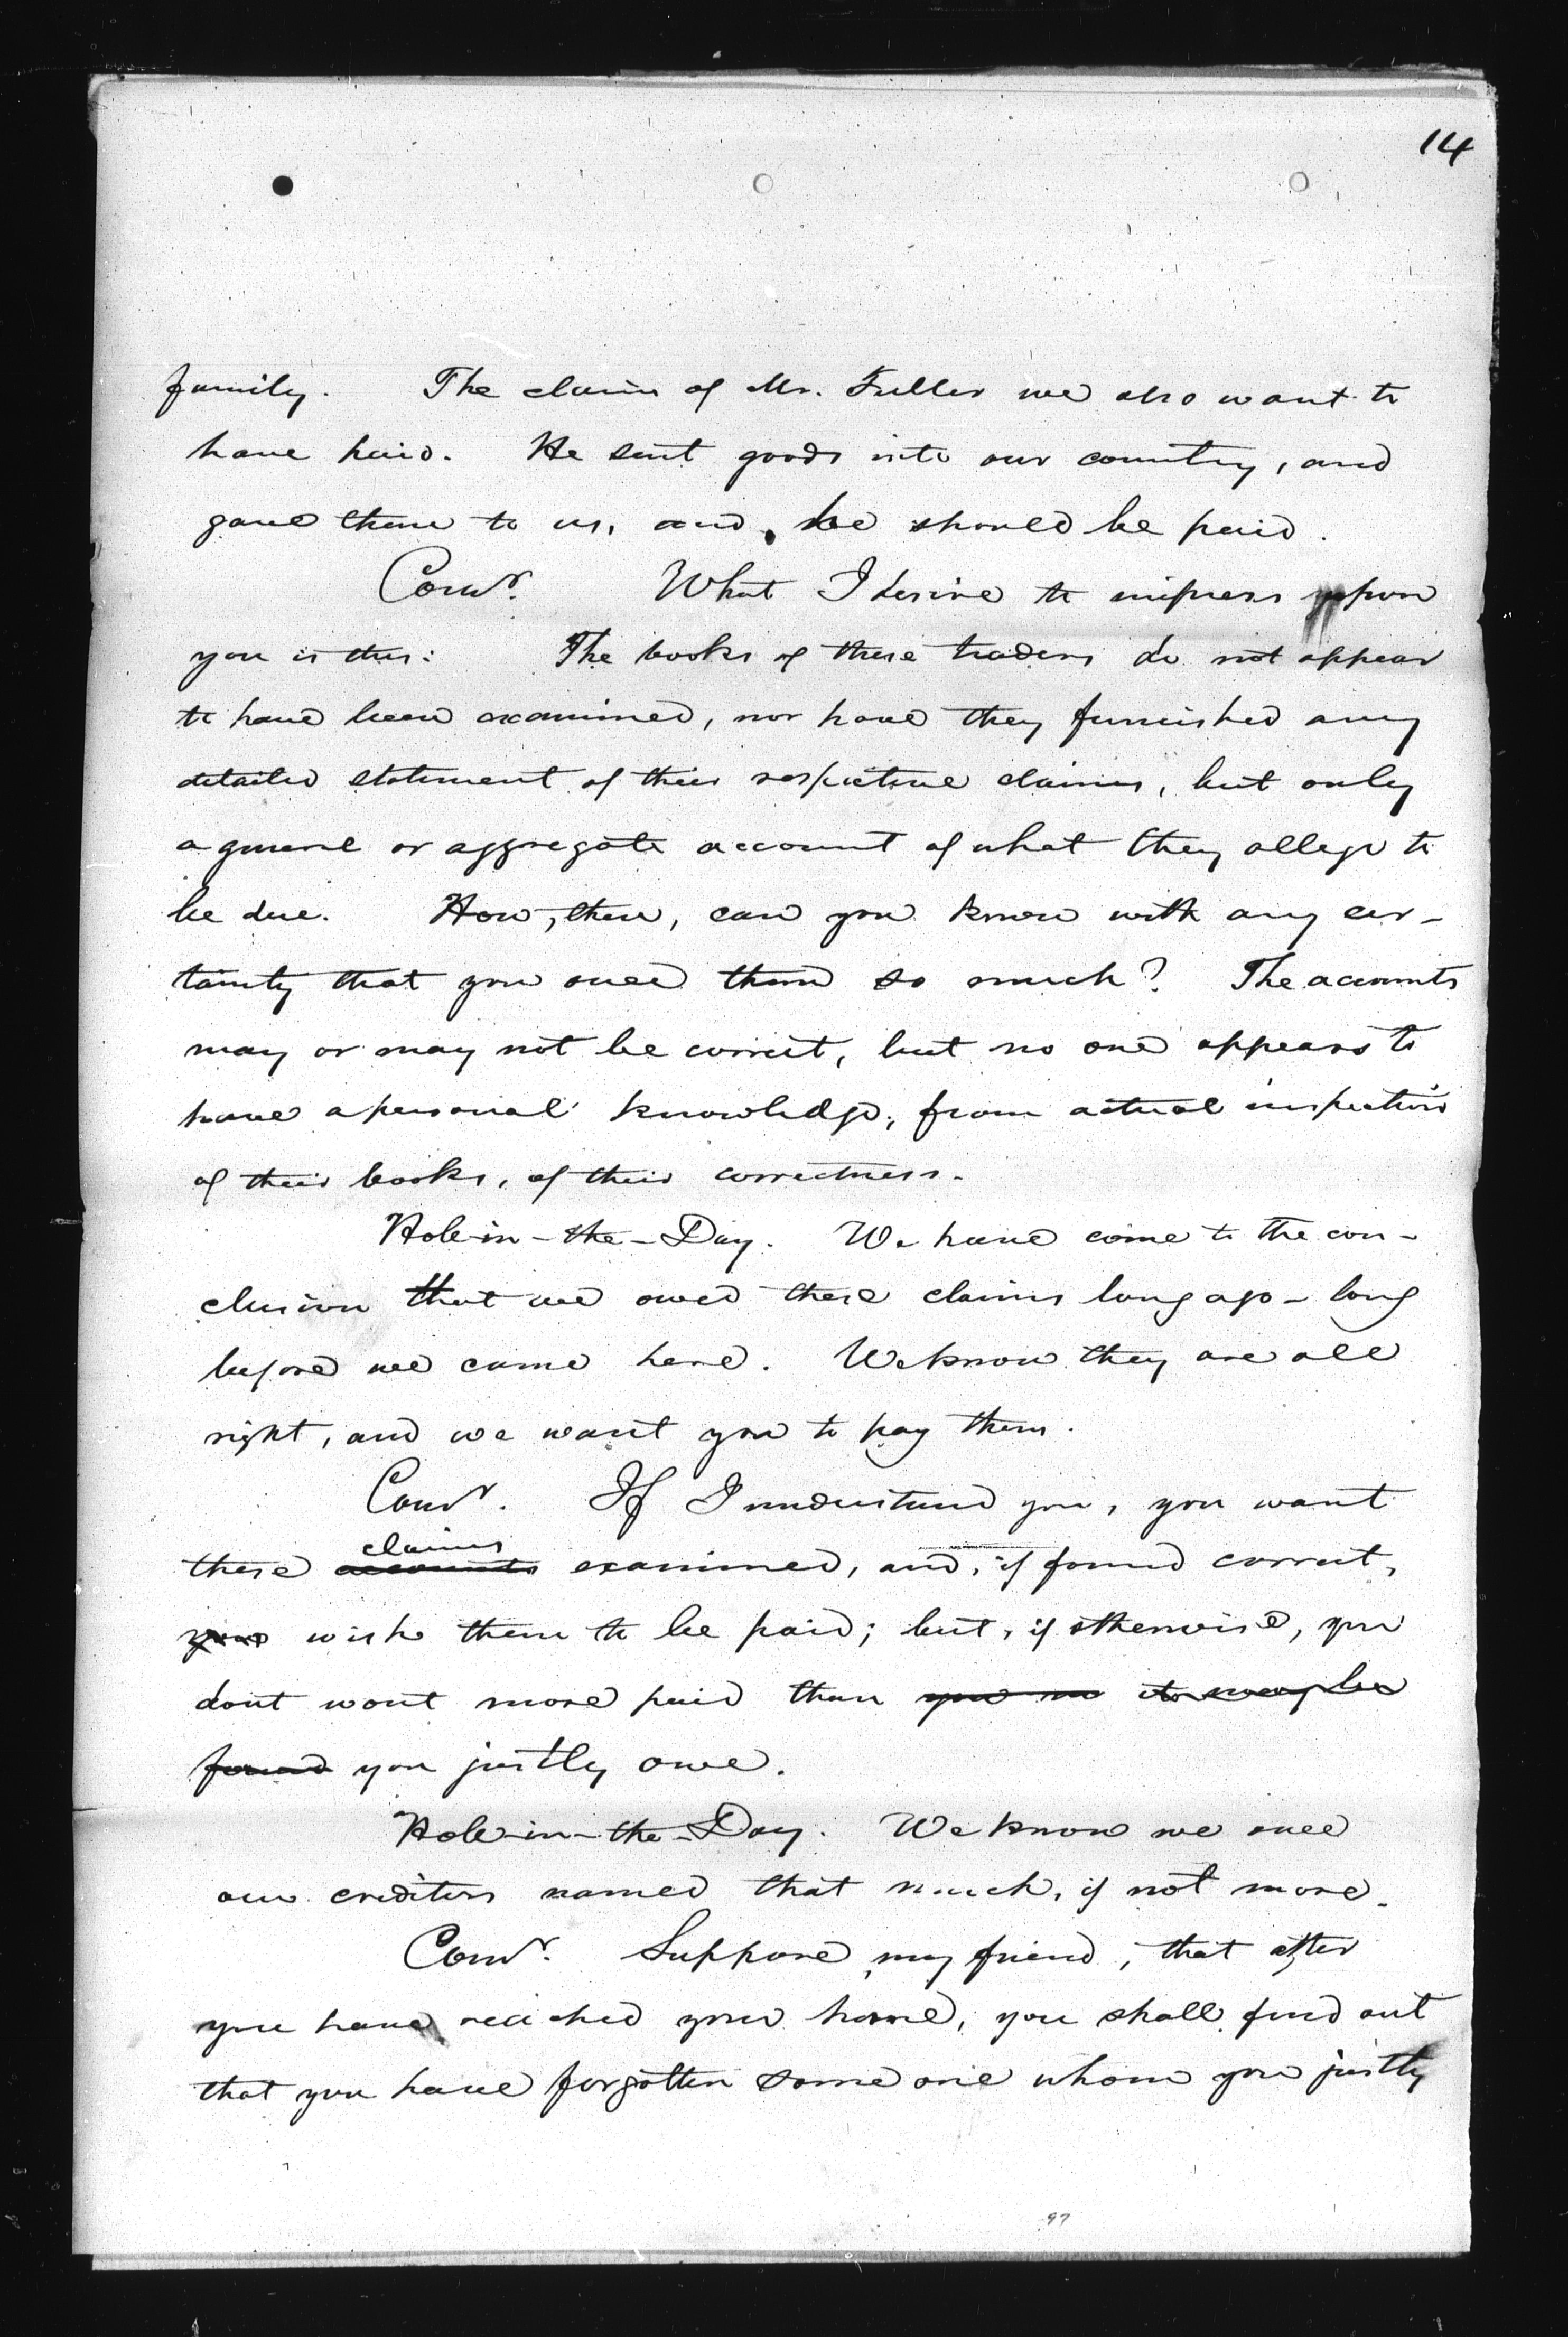 14
family. The claim of Mr. Fuller we also want to
have paid. He sent goods into our country, and
gave them to us, and, he should be paid.
Comr. What I desire to impress upon
you is this: The books of these traders do not appear
to have been examined, nor have they furnished any
detailed statement of their respective claims, but only
a general or aggregate account of what they allege to
be due. How, then, can you know with any cer-
tainty that you owed them so much? The accounts
may or may not be correct, but no one appears to
have a personal knowledge, from actual inspection
of their books, of their correctness.
Hole-in-the-Day. We have come to the con-
clusion that we owed these claims long ago - long
before we came here. We know they are all
right, and we want you to pay them.
Comr. If I understand you, you want
claims
these accounts examined, and, if found correct,
you wish them to be paid; but, if otherwise, you
dont want more paid than you it may be
found you justly owe.
Hole-in-the-Day. We know we owed
our creditors named that much, if not more.
Comr. Suppose, my friend, that after
you have reached your home, you shall find out
that you have forgotten some one whom you justly
97